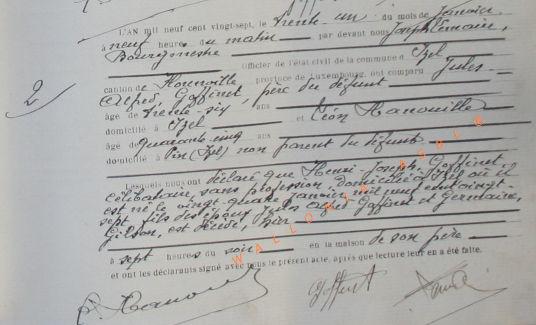 L'AN mil neuf cent vingt-sept, le trente-un du mois de Janvier
à neuf heures du matin par devant nous Joseph Lemaire,
Bourgmestre
Officier de l'état civil de la commune d'Izel
canton de province de Luxembourg, ont comparu Jules-
Alfred, Goffinet, père du défunt
âgé de trente-six ans
domicilié à Izel et Léon Hanouille
âgé de quarante-cinq ans
domicilié à Pin (Izel) non parent du défunt
2/
Lesquels nous ont déclaré que Henri-Joseph, Goffinet,
célibataire, sans profession, domicilié à Izel où il
est né le vingt-quatre janvier mil neuf cent vingt-
sept fils des époux Jules Alfred Goffinet et Germaine,
Gilson, est décédé, hier
à sept heures du soir en la maison de son père
et ont les déclarants signé avec nous le présent acte, après que lecture leur en a été faite.
WALLONIE LEGALE
L. Hanouille Goffinet